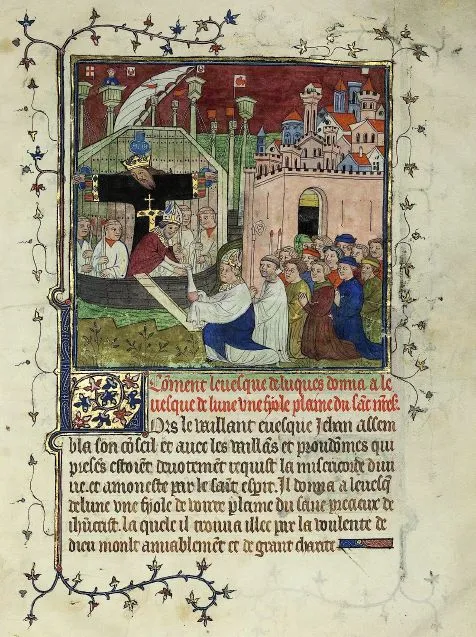 Coment leuesque de luques donna a le
uesque de lune vne fyole plaine du sāc
LOrs le vaillant euesque Jehan assem
bla son cōseil et auec les vaillās et proudōmes qui
presēs estoiēt deuotement requist la misericorde diui
ne. et amoneste par le saīt esprit. Il donna a leuesq̄
de lune vne fyole de voirre plaine du sanc precieux de
ihūcrist. la quele il trouua illec par la voulente de
dieu moult amiablemēt et de grant charite